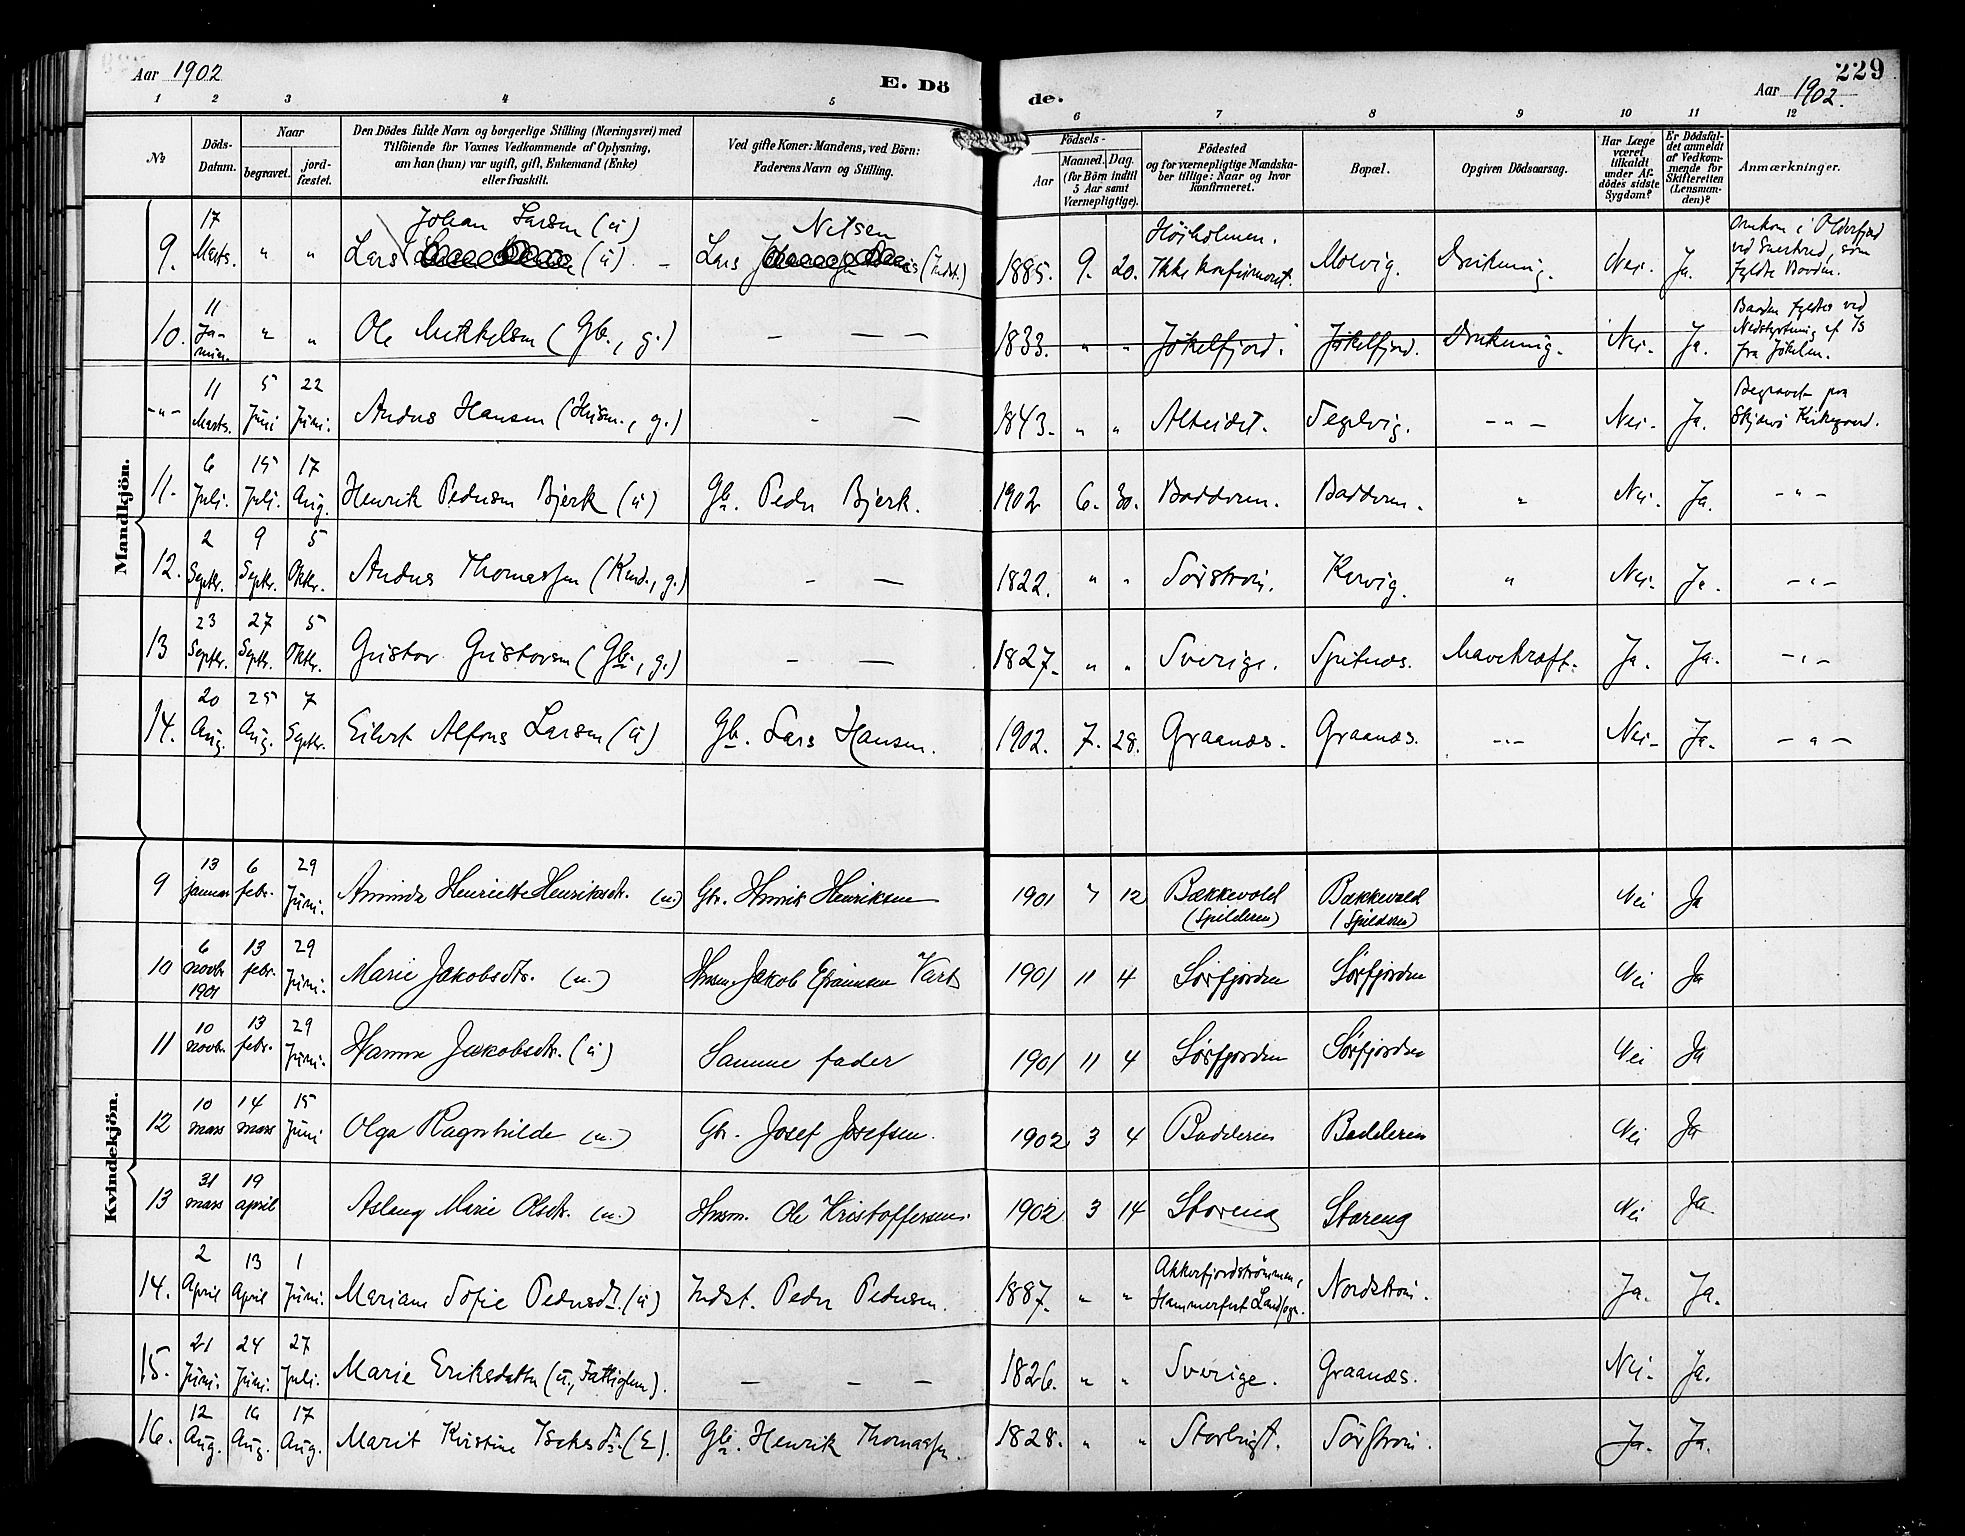 Aar 1902
E. Dö
de.
229
Aar 1902.
1 2 3 4 5 6 7 8 9 10 11 12
No
Döds-Datum.
Naar
begravet.
jord-fæstet.
Den Dödes fulde Navn og borgerlige Stilling (Næringsvei) med
Tilföiende for Voxnes Vedkommende af Oplysning,
am han (hun) var ugift, gift, Enkemand (Enke)
eller fraskilt.
Ved gifte Koner: Mandens, ved Börn:
Faderens Navn og Stilling.
Födsels-
Aar
Maaned. Dag.
(for Börn indtil
5 Aar samt
Værnepligtige).
Födested
og for værnepligtige Mandska-
ber tillige: Naar og hvor
konfirmeret.
Bopæl.
Opgiven Dödsaarsag.
Har Læge
været
tilkaldt
under Af-
dödes sidste
Sygdom?
Er Dödsfal-
det anmeldt
af Vedkom-
mende for
Skifteretten
(Lensman-
den)?
Anmærkninger.
Mandkjön.
17 Johan Larsen (u) Nilsen Höiholmen. Omkom i Olderfjord
9. Marts. " " Lars (u) - Lars (Indst.) 1885. 9. 20. Ikke konfirmeret. Molvig. Drukning. Nei. Ja. ved Sneskred, som
fyldte Baaden.
11
10. Januar " " Ole Mikkelsen (Gb., g.) - - - 1833. " " Jökelfjord. Jökelfjord. Drukning. Nei. Ja. Baaden fyldtes ved
Nedstyrtning af Is
fra Jökelen.
11 5 22
-"- Marts. Juni Juni. Andus Hansen (Husm., g.) - - 1843. " " Alteidet. Segelvig. -"- Nei. Ja. Begravet paa
Skjervö Kirkegaard.
6 15 17
11. Juli. Juli. Aug. Henrik Pedersen Bjerk (u) Gb. Peder Bjerk. 1902 6. 30. Badderen. Badderen. " Nei. Ja. -"-
2 9 5
12. Septbr. Septbr. Oktbr. Andus Thomassen (Kund., g.) - - 1822. " " Sörström. Kvvig. " Nei. Ja. -"-
23 27 5
13 Septbr. Septbr. Oktbr. Gustav Gustavsen (Gb., g.) - - 1827. " " Sverige. Spitnæs. Mavekræft. Ja. Ja. -"-
20 25 7
14. Aug. Aug. Septbr. Eilert Alfons Larsen (u) Gb. Lars Hansen. 1902. 7. 28. Graanæs. Graanæs. -"- Nei. Ja. -"-
Kvindekjön.
13 6 29
9 januar febr. Juni. Aminda Henriette Henriksdtr. (u.) Gbr. Henrik Henriksen 1901 7 12 Bakkevold Bakkevold Nei Ja
(Spilderen) (Spilderen)
6 13 29
10 novbr febr. Juni. Marie Jakobsdtr. (u.) Husm. Jakob Efraimsen Vart 1901 11 4 Sörfjorden Sörfjorden Nei Ja
1901
10 13 29
11 novbr. febr. Juni. Hanna Jakobsdtr. (u) Samme fader 1901 11 4 Sörfjorden Sörfjorden Nei Ja
10 14 15
12 mars mars Juni Olga Ragnhilde (u.) Gbr. Josef Josefsen. 1902 3 4 Badderen Badderen Nei Ja
31 19
13 mars april Aslaug Marie Olsdtr. (u.) Husm. Ole Kristoffersen. 1902 3 14 Storeng Storeng Nei Ja
2 13 1 Akkerfjordströmmen,
14. April April Juni. Mariane Sofie Pedersdtr. (u) Indst. Peder Pedersen. 1887. " " Hammerfest Landsogn. Nordström. Ja. Ja.
21 24 27
15. Juni. Juni. Juli. Marie Eriksdatter (u., Fattiglem). - - - 1826. " " Sverige. Graanæs. Nei. Ja.
12 16 17
16. Aug. Aug. Aug. Marit Kristine Isaksdtr. (E). Gb. Henrik Thomassen. 1828. " " Storbugt. Sörström. Ja. Ja.